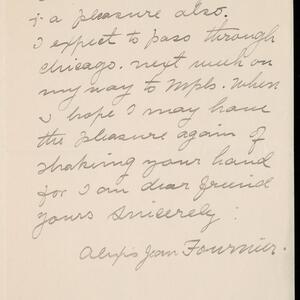 & a pleasure also.
I expect to pass through
Chicago. next week on
my way to Mpls. When
I hope I may have
the pleasure again of
shaking your hand
for I am dear friend
yours sincerely:
Alexis Jean Fournier.